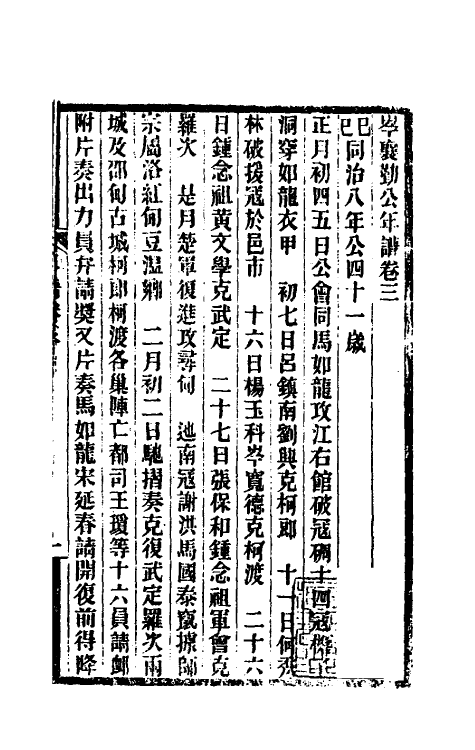 岑襄勤公年譜卷三
己巳同治八年公四十一歲
正月初四五日公會同馬如龍攻江右館破寇碉十四寇礮
洞穿如龍衣甲　初七日呂鎮南劉興克柯郎　十一日何秀
林破援寇於邑市　十六日楊玉科岑寬德克柯渡　二十六
日鍾念祖黃文學克武定　二十七日張保和鍾念祖軍會克
羅次　是月楚軍復進攻尋甸　迤南寇謝洪馬國泰竄擾師
宗屬洛紅甸豆溫鄉　二月初二日馳摺奏克復武定羅次兩
城及邵甸古城柯郎柯渡各巢陣亡都司王環等十六員請卹
附片奏出力員弁請獎又片奏馬如龍宋延春請開復前得降